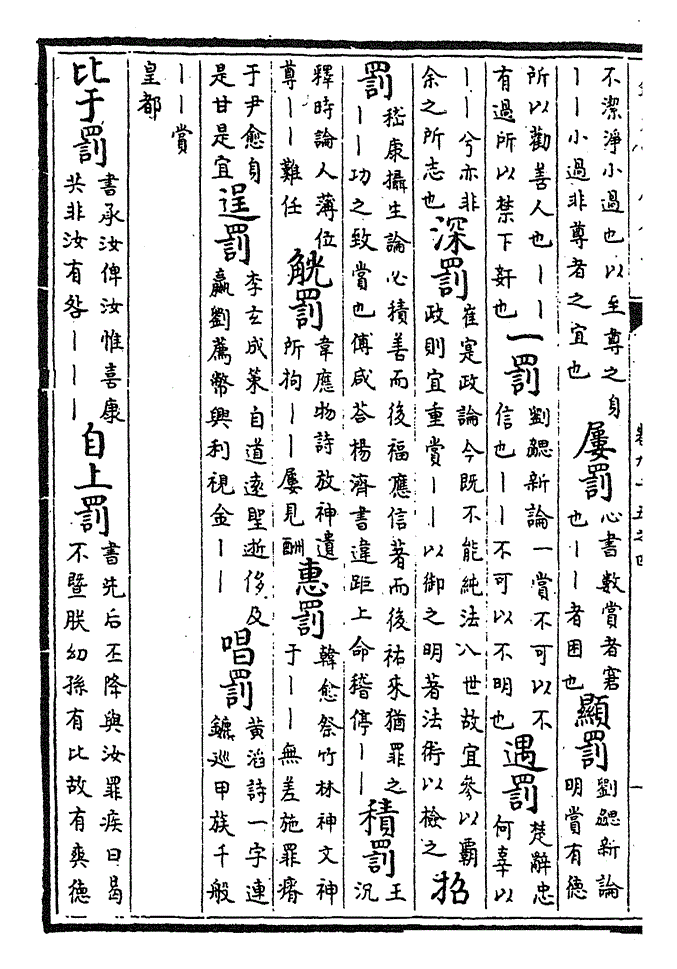 不潔淨小過也以至尊之身
丨丨小過非尊者之宜也
屢罰
心書數賞者窘
也丨丨者困也
顯罰
劉勰新論
明賞有德
所以勸善人也丨丨
有過所以禁下姧也
一罰
劉勰新論一賞不可以不
信也丨丨不可以不明也
遇罰
楚辭忠
何辜以
丨丨兮亦非
余之所志也
深罰
崔寔政論今既不能純法八世故宜參以霸
政則宜重賞丨丨以御之明著法術以檢之
招
罰
嵇康攝生論必積善而後福應信著而後祐來猶罪之
丨丨功之致賞也傅咸荅楊濟書違距上命稽停丨丨
積罰
王
況
釋時論人薄位
尊丨丨難任
觥罰
韋應物詩放神遺
所拘丨丨屢見酬
惠罰
韓愈祭竹林神文神
于丨丨無差施罪瘠
于尹愈身
是甘是宜
逞罰
李玄成策自道遠聖逝侈及
嬴劉薦幣興利視金丨丨
唱罰
黃滔詩一字連
鑣巡甲族千般
丨丨賞
皇都
比于罰
書承汝俾汝惟喜康
共非汝有咎丨丨丨
自上罰
書先后丕降與汝罪疾曰曷
不暨朕幼孫有比故有爽德